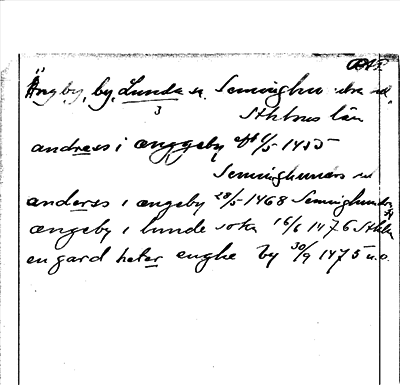 Ängby, by, Lunda sn. Seminghu
3
Sthlms län
andreas i ænggeby 1/5 1435
Seminghundra
anderes i ængeby 28/5 1468 Seminghundra
ængeby i lunde sokn 16/6 1476 Sthlm
en gard heter engbe by 30/9 1475 u.o.